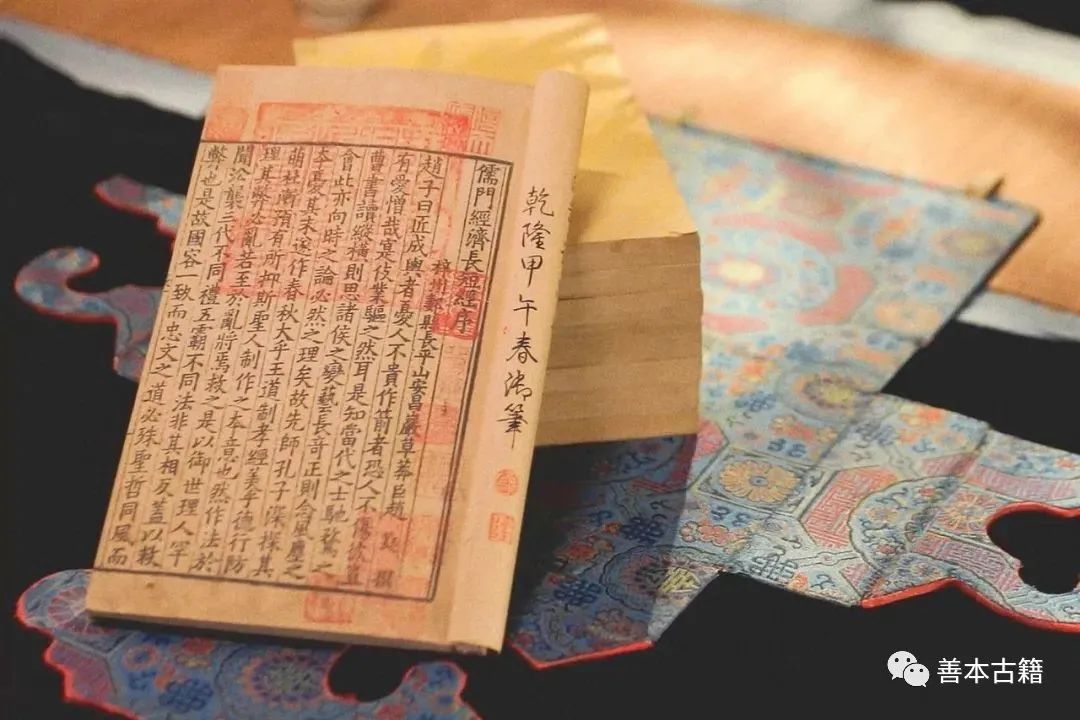 乾隆甲午春御筆
儒門經濟長短經序
梓州郪縣長平山安昌巖草莽臣趙蕤撰
趙子曰近成輿者憂人不貴作箭者恐人不傷彼豈
有愛憎哉寔伎業驅之然耳是知當代之士馳騖之
曹書讀縱橫則思諸侯之變藝長奇正則念風塵之
會此亦向時之論必然之理矣故先師孔子深探其
本憂其末遂作春秋大乎王道制孝經美乎德行防
萌杜漸預有所抑斯聖人制作之本意也然作法於
理其弊必亂若至於亂將焉救之是以御世理人罕
聞沿襲三代不同禮五霸不同法非其相反蓋以救
弊也是故國容一致而忠文之道必殊聖哲同風而
善本古籍